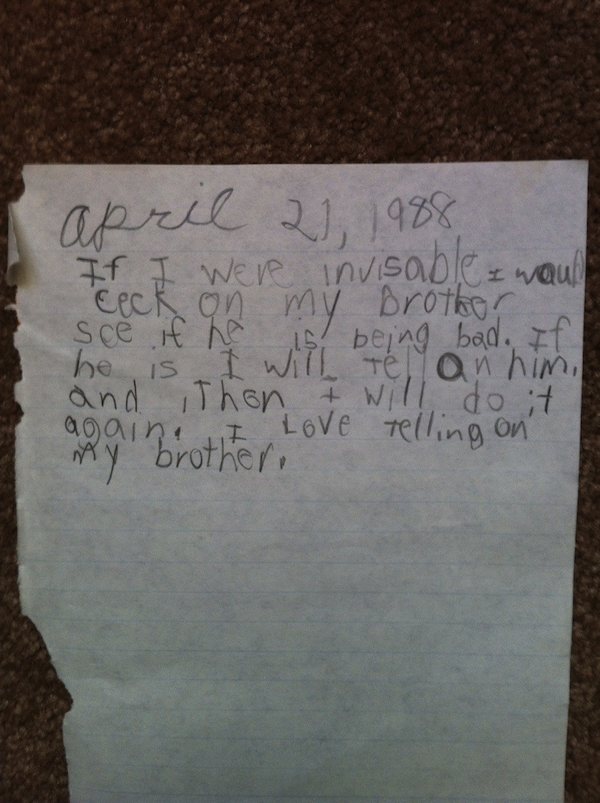 april 21, 1988
If I were invisable I woul
ceck on my Brother
see if he is being bad. If
he is I will tell on him.
and then I will do it
again. I Love telling on
my brother.